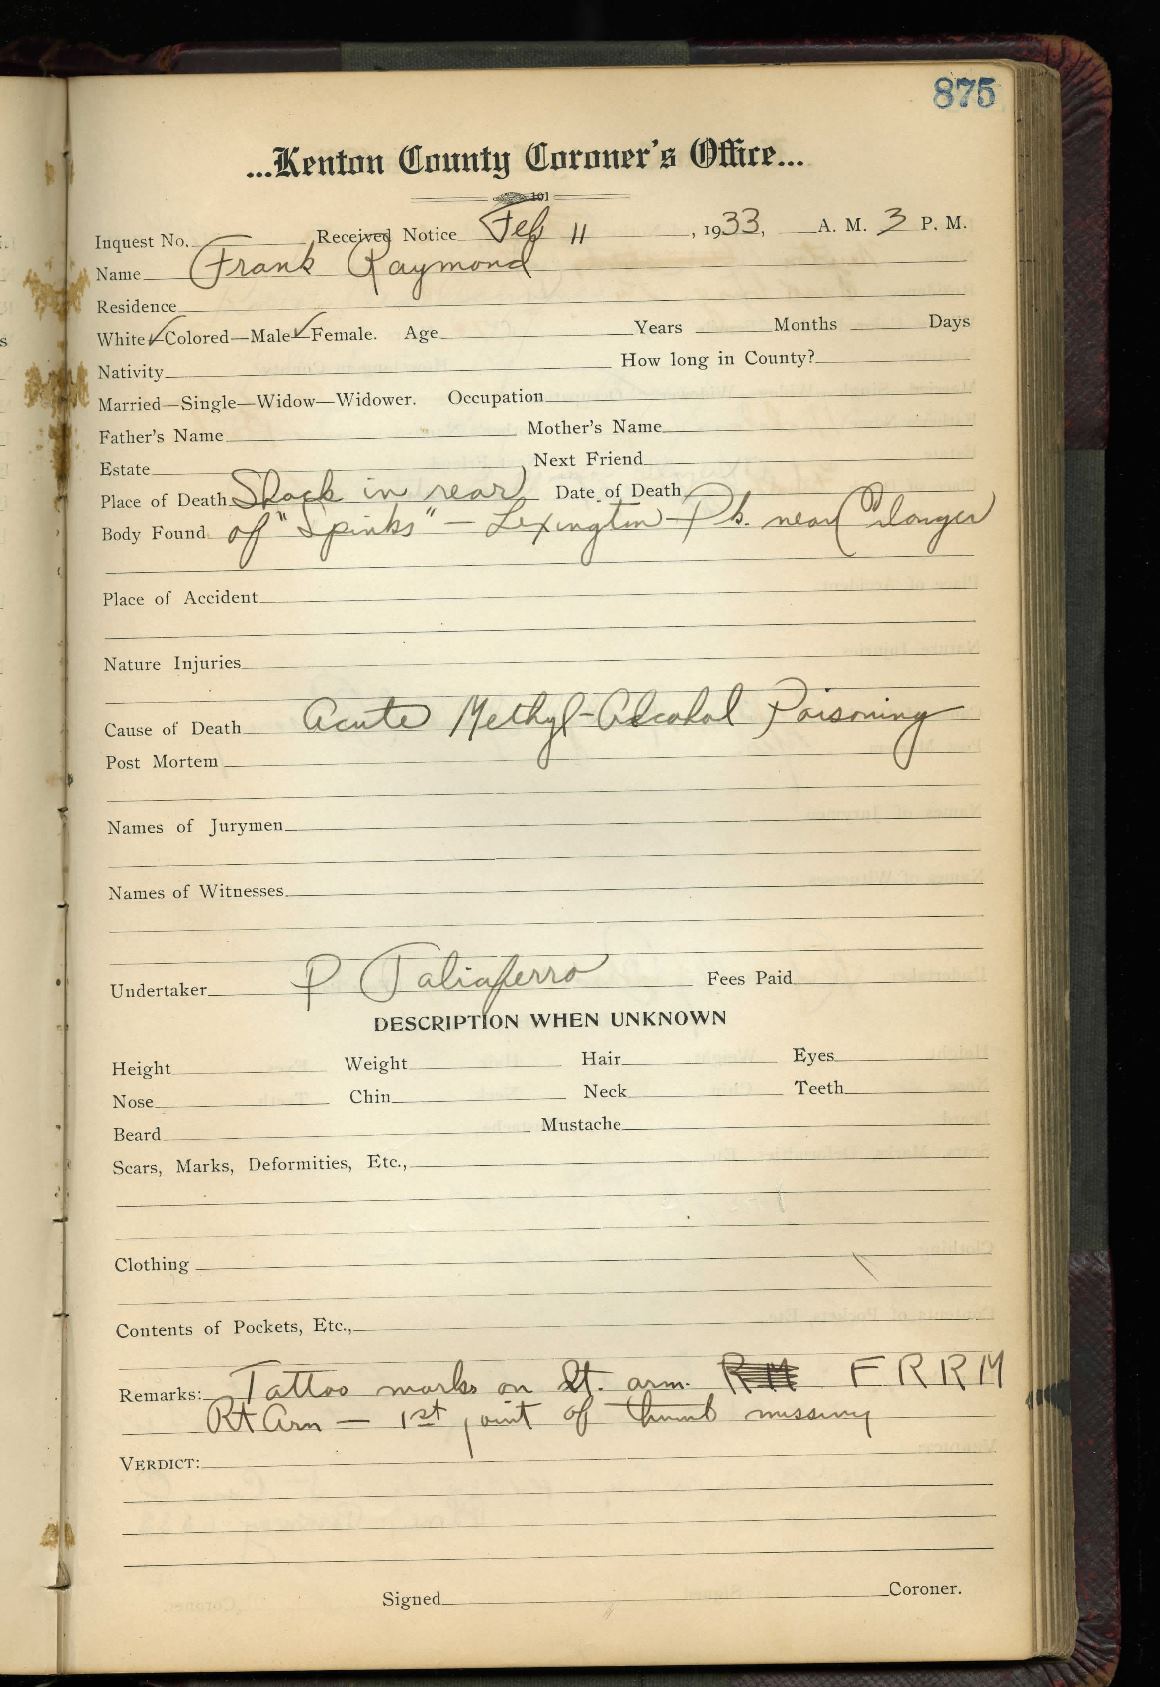 875
...Kenton County Coroner's Office...
101
Inquest No. Received Notice Feb 11, 1933, A. M. 3 P. M.
Name Frank Raymond
Residence
White ✓ Colored—Male ✓ Female. Age Years Months Days
Nativity How long in County?
Married—Single—Widow—Widower. Occupation
Father's Name Mother's Name
Estate Next Friend
Place of Death Shack in rear Date of Death
Body Found of "Spinks" — Lexington Pk. near Erlanger
Place of Accident
Nature Injuries
Cause of Death Acute Methyl-Alcohol Poisoning
Post Mortem
Names of Jurymen
Names of Witnesses
Undertaker P Taliaferro Fees Paid
DESCRIPTION WHEN UNKNOWN
Height Weight Hair Eyes
Nose Chin Neck Teeth
Beard Mustache
Scars, Marks, Deformities, Etc.,
Clothing
Contents of Pockets, Etc.,
Remarks: Tattoo marks on Lt. arm. RM F R R M
Rt Arm — 1st joint of thumb missing
VERDICT:
Signed Coroner.